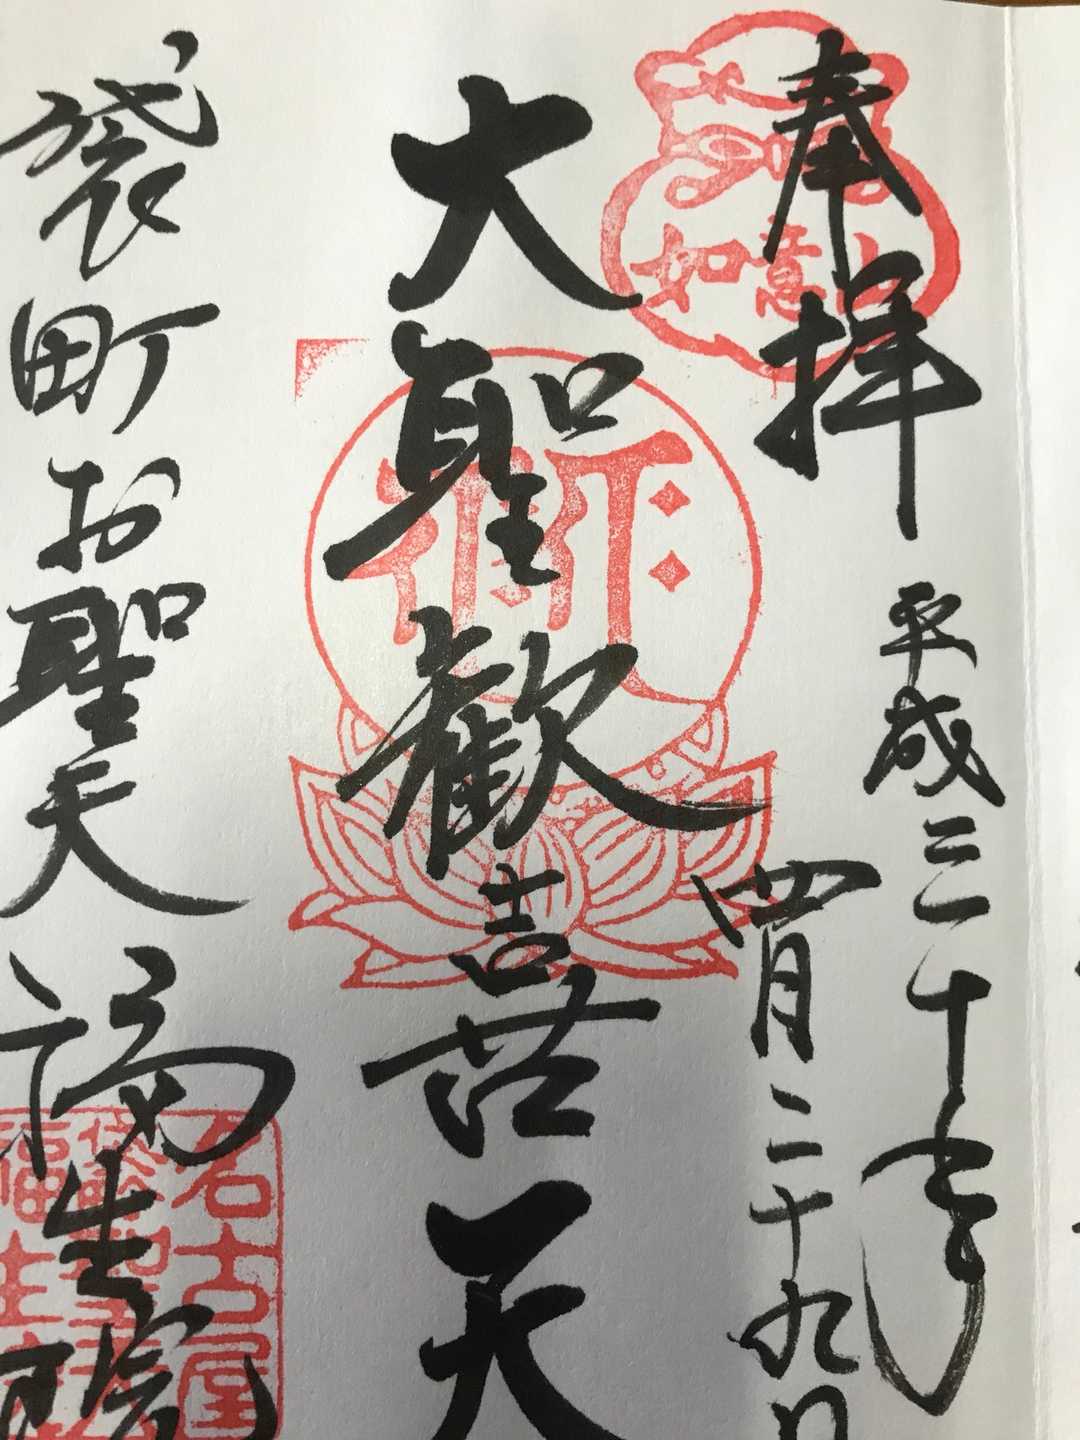 奉拝
平成三十年
四月二十九日
如意山
大聖歓喜天
袋町お聖天
福生院
名古屋
袋町聖天
福生院